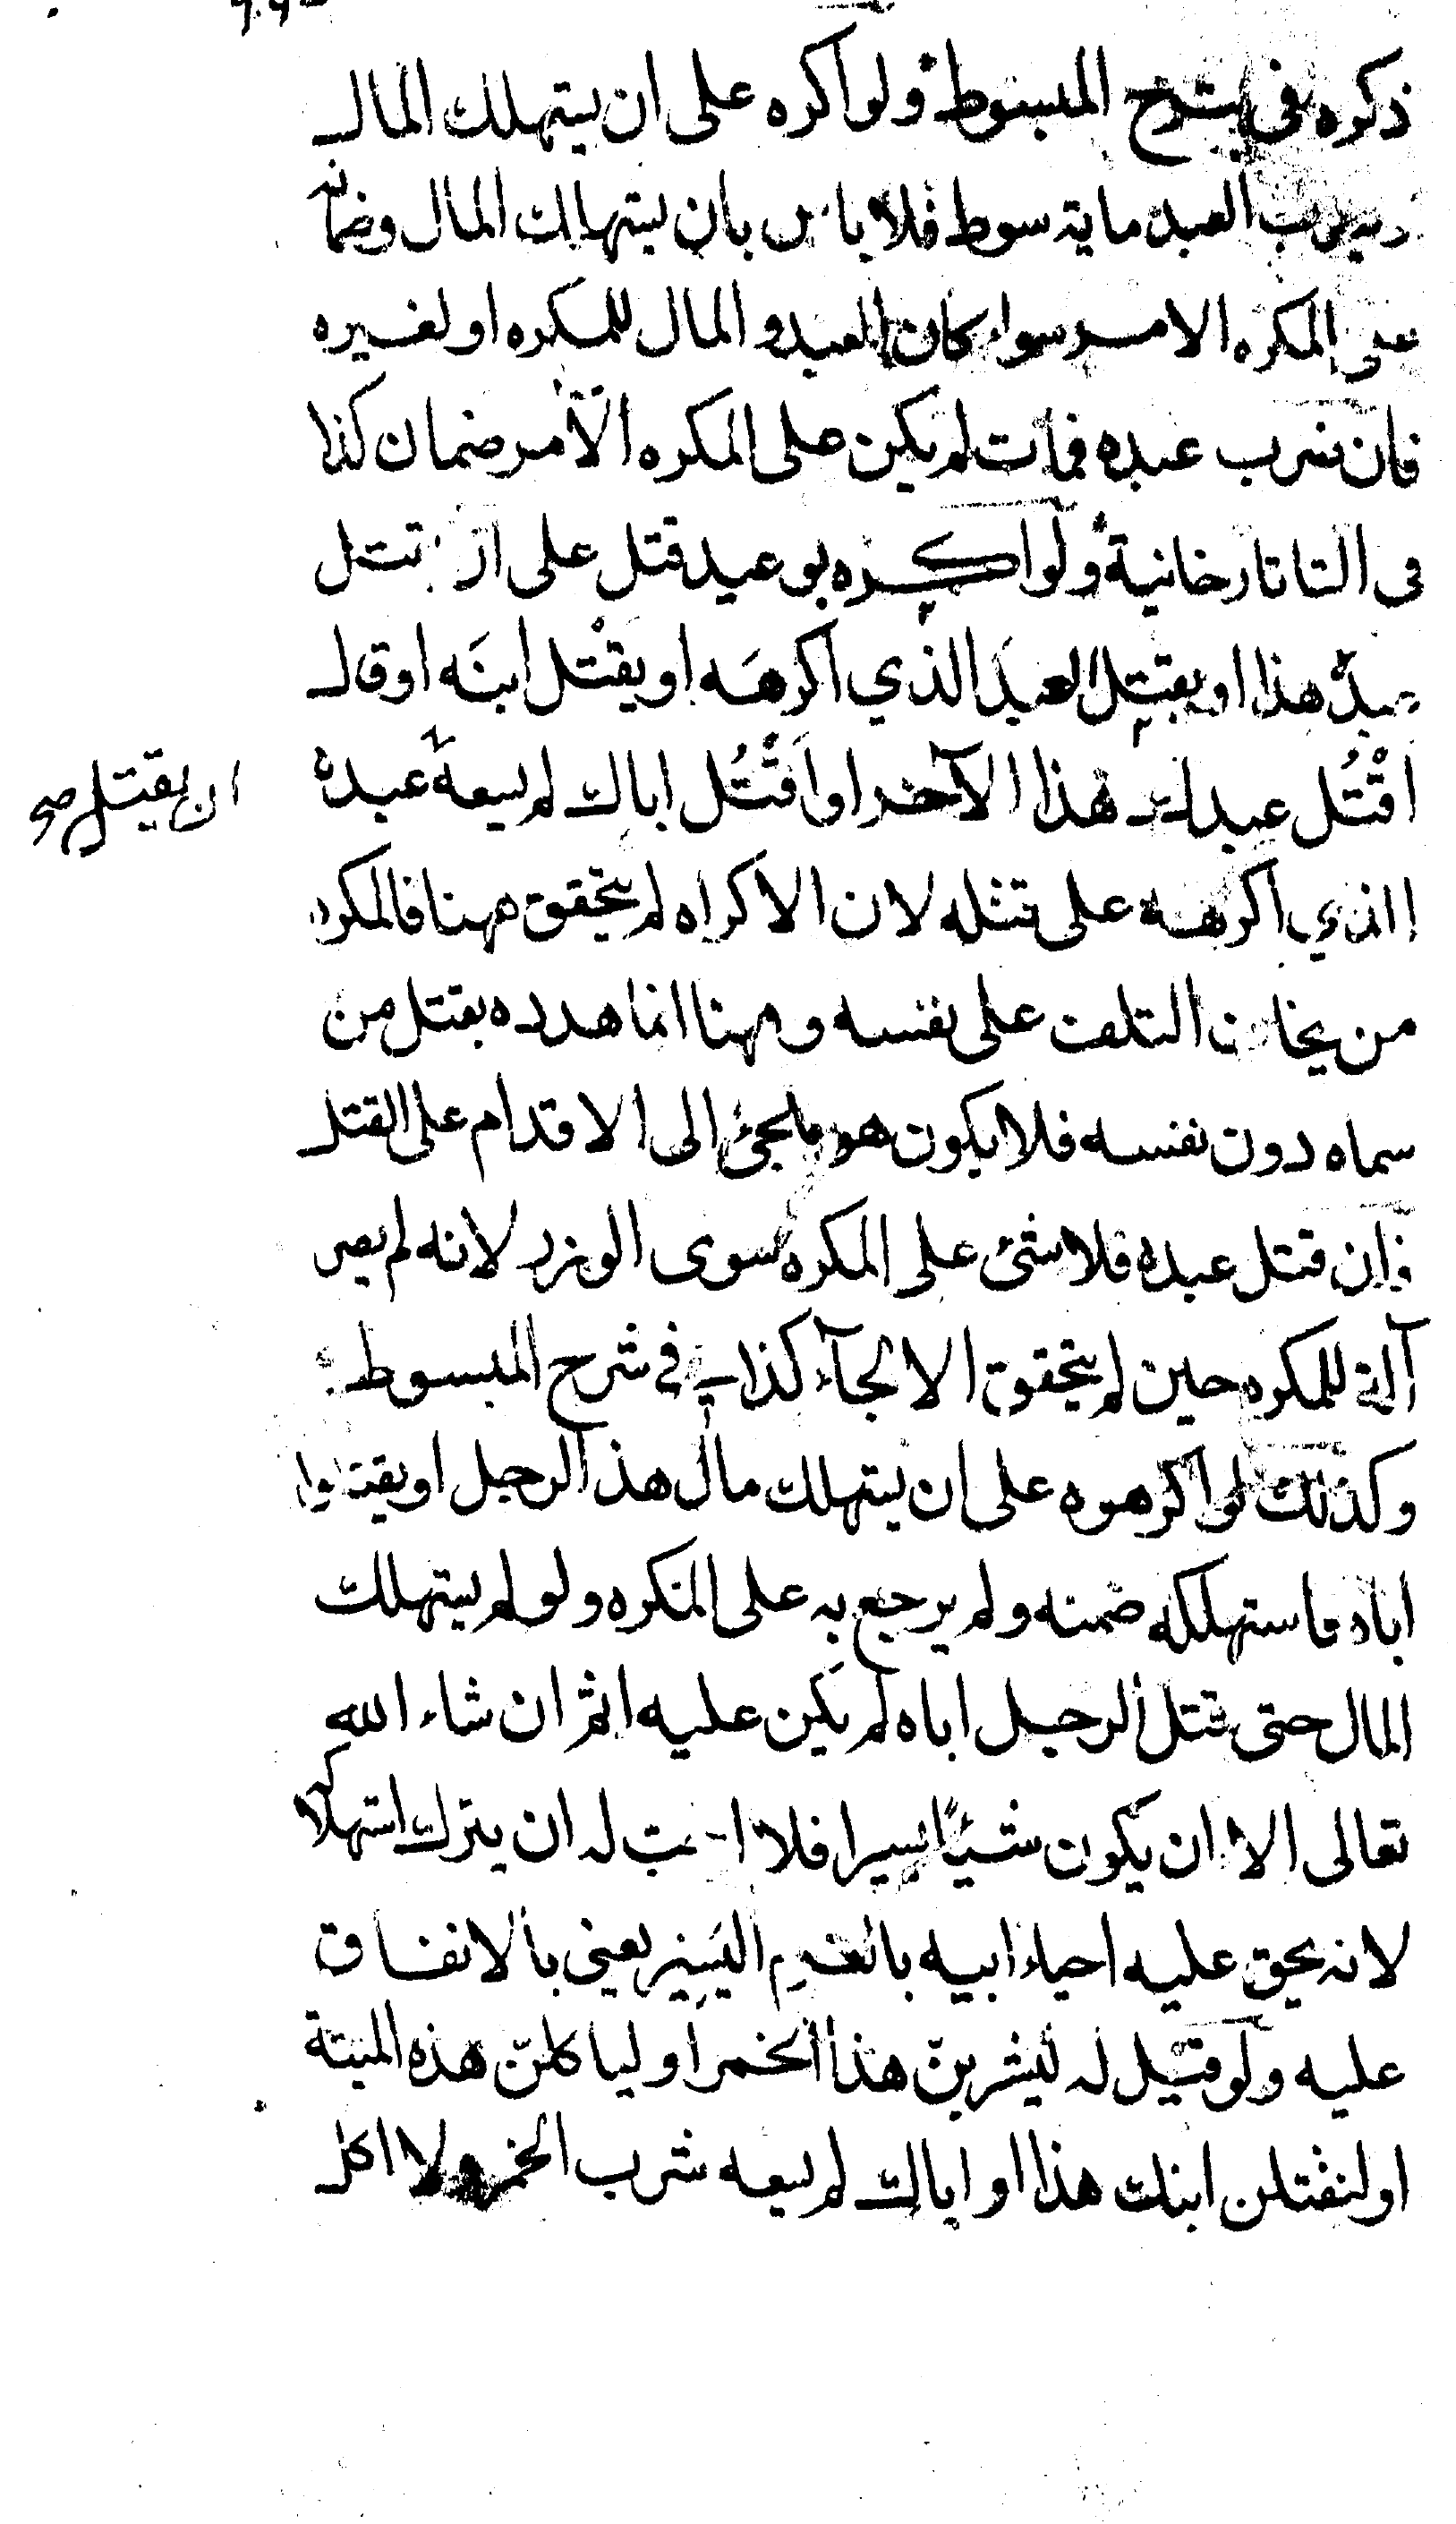 ذكره في شرح المبسوط ولو اكره على ان يستهلك المال
العبد ماية سوط فلا باس بان يستهلك المال وضمانه
على المكره الامر سواء كان العبد و المال للمكره او لغيره
فان ضرب عبده فمات لم يكن على المكره الآمر ضمان كذا
فى التاتارخانية ولو اكره بوعيد قتل على ان تقتل
عبده هذا او يقتل العبد الذي اكرهَه او يقتْل ابنَه او قال
اقْتُل عبدك هذا الآخر او اقْتُل اباك لم يسعه عبده
ان يقتل صح
الذي اكرهه على قتله لان الاكراه لم يتحقق ههنا فالمكره
من يخاف التلف على نفسه وههنا انما هدده بقتل من
سماه دون نفسه فلا يكون هو ملجئ الى الاقدام على القتل
فان قتل عبده فلا شئ على المكره سوى الوزر لانه لم يصر
آلة للمكره حين لم يتحقق الالجآء كذا في شرح المبسوط
وكذلك لو اكرهوه على ان يستهلك مال هذا الرجل او يقتلوا
اباه فاستهلكه ضمنه ولم يرجع به على المكره ولو لم يستهلك
المال حتى قتل الرجل اباه لم يكن عليه اثم ان شاء الله
تعالى الا ان يكون شيئًا يسيرا فلا احب له ان يترك استهلاكه
لانه يحق عليه احياء ابيه بالغرم اليسير يعنى بالانفاق
عليه ولو قيل له ليشربنّ هذا الخمر او لياكلنّ هذه الميتة
او لنقتلن ابنك هذا او اباك لم يسعه شرب الخمر ولا اكل